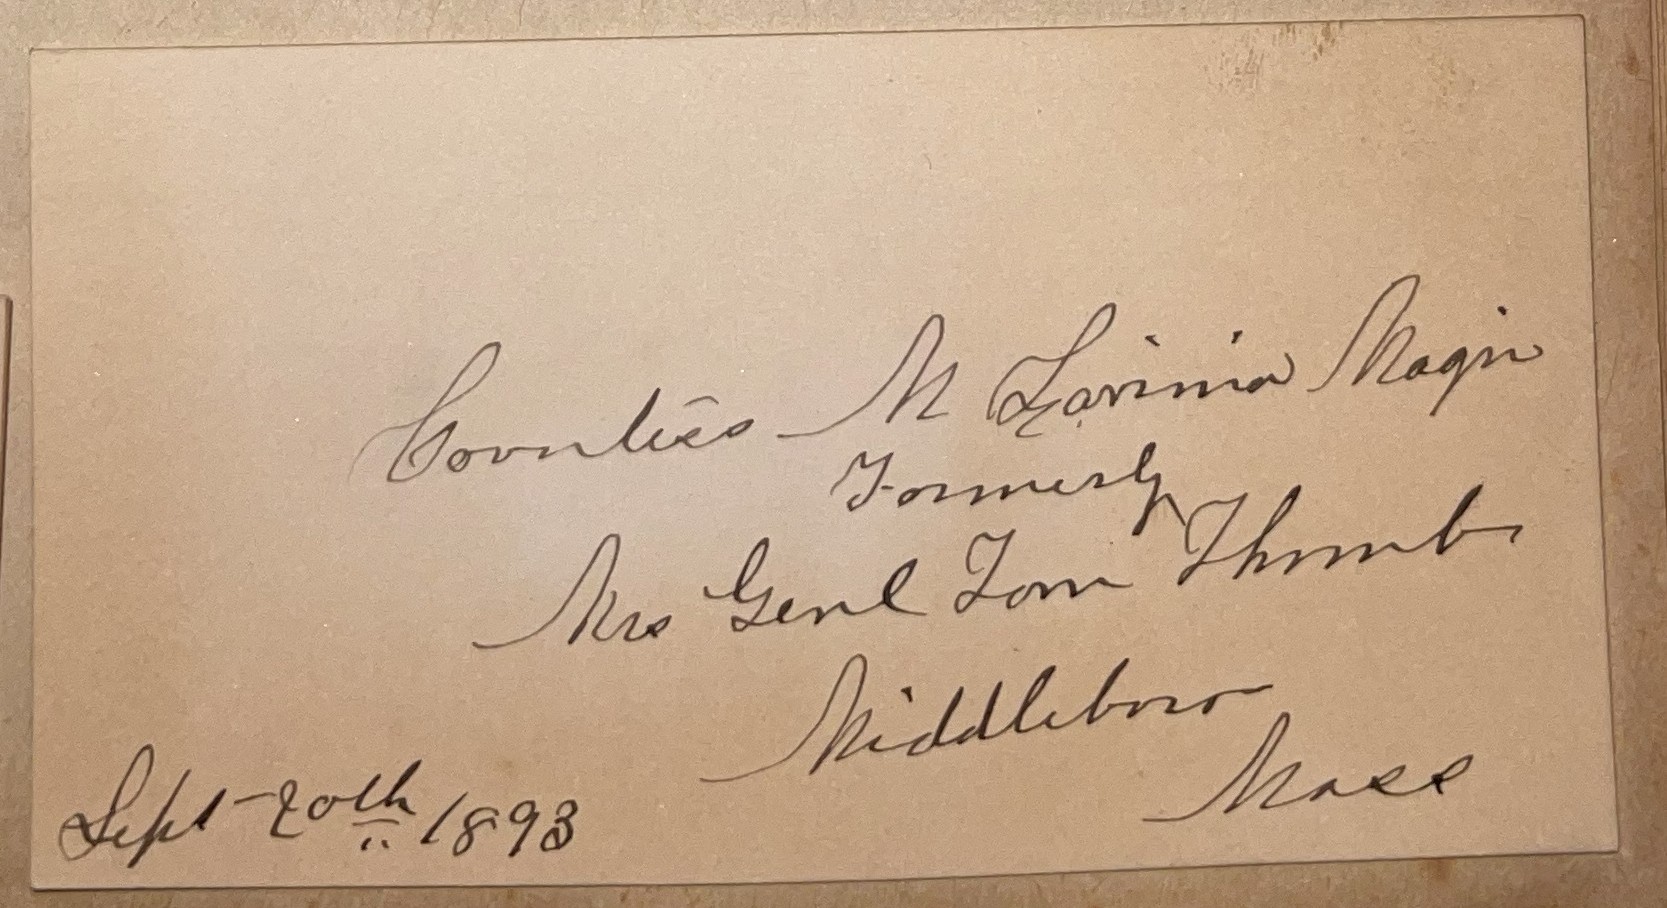 Countess M Lavinia Magri
Formerly
Mrs Genl Tom Thumb
Middleboro
Mass
Sept 20th 1893